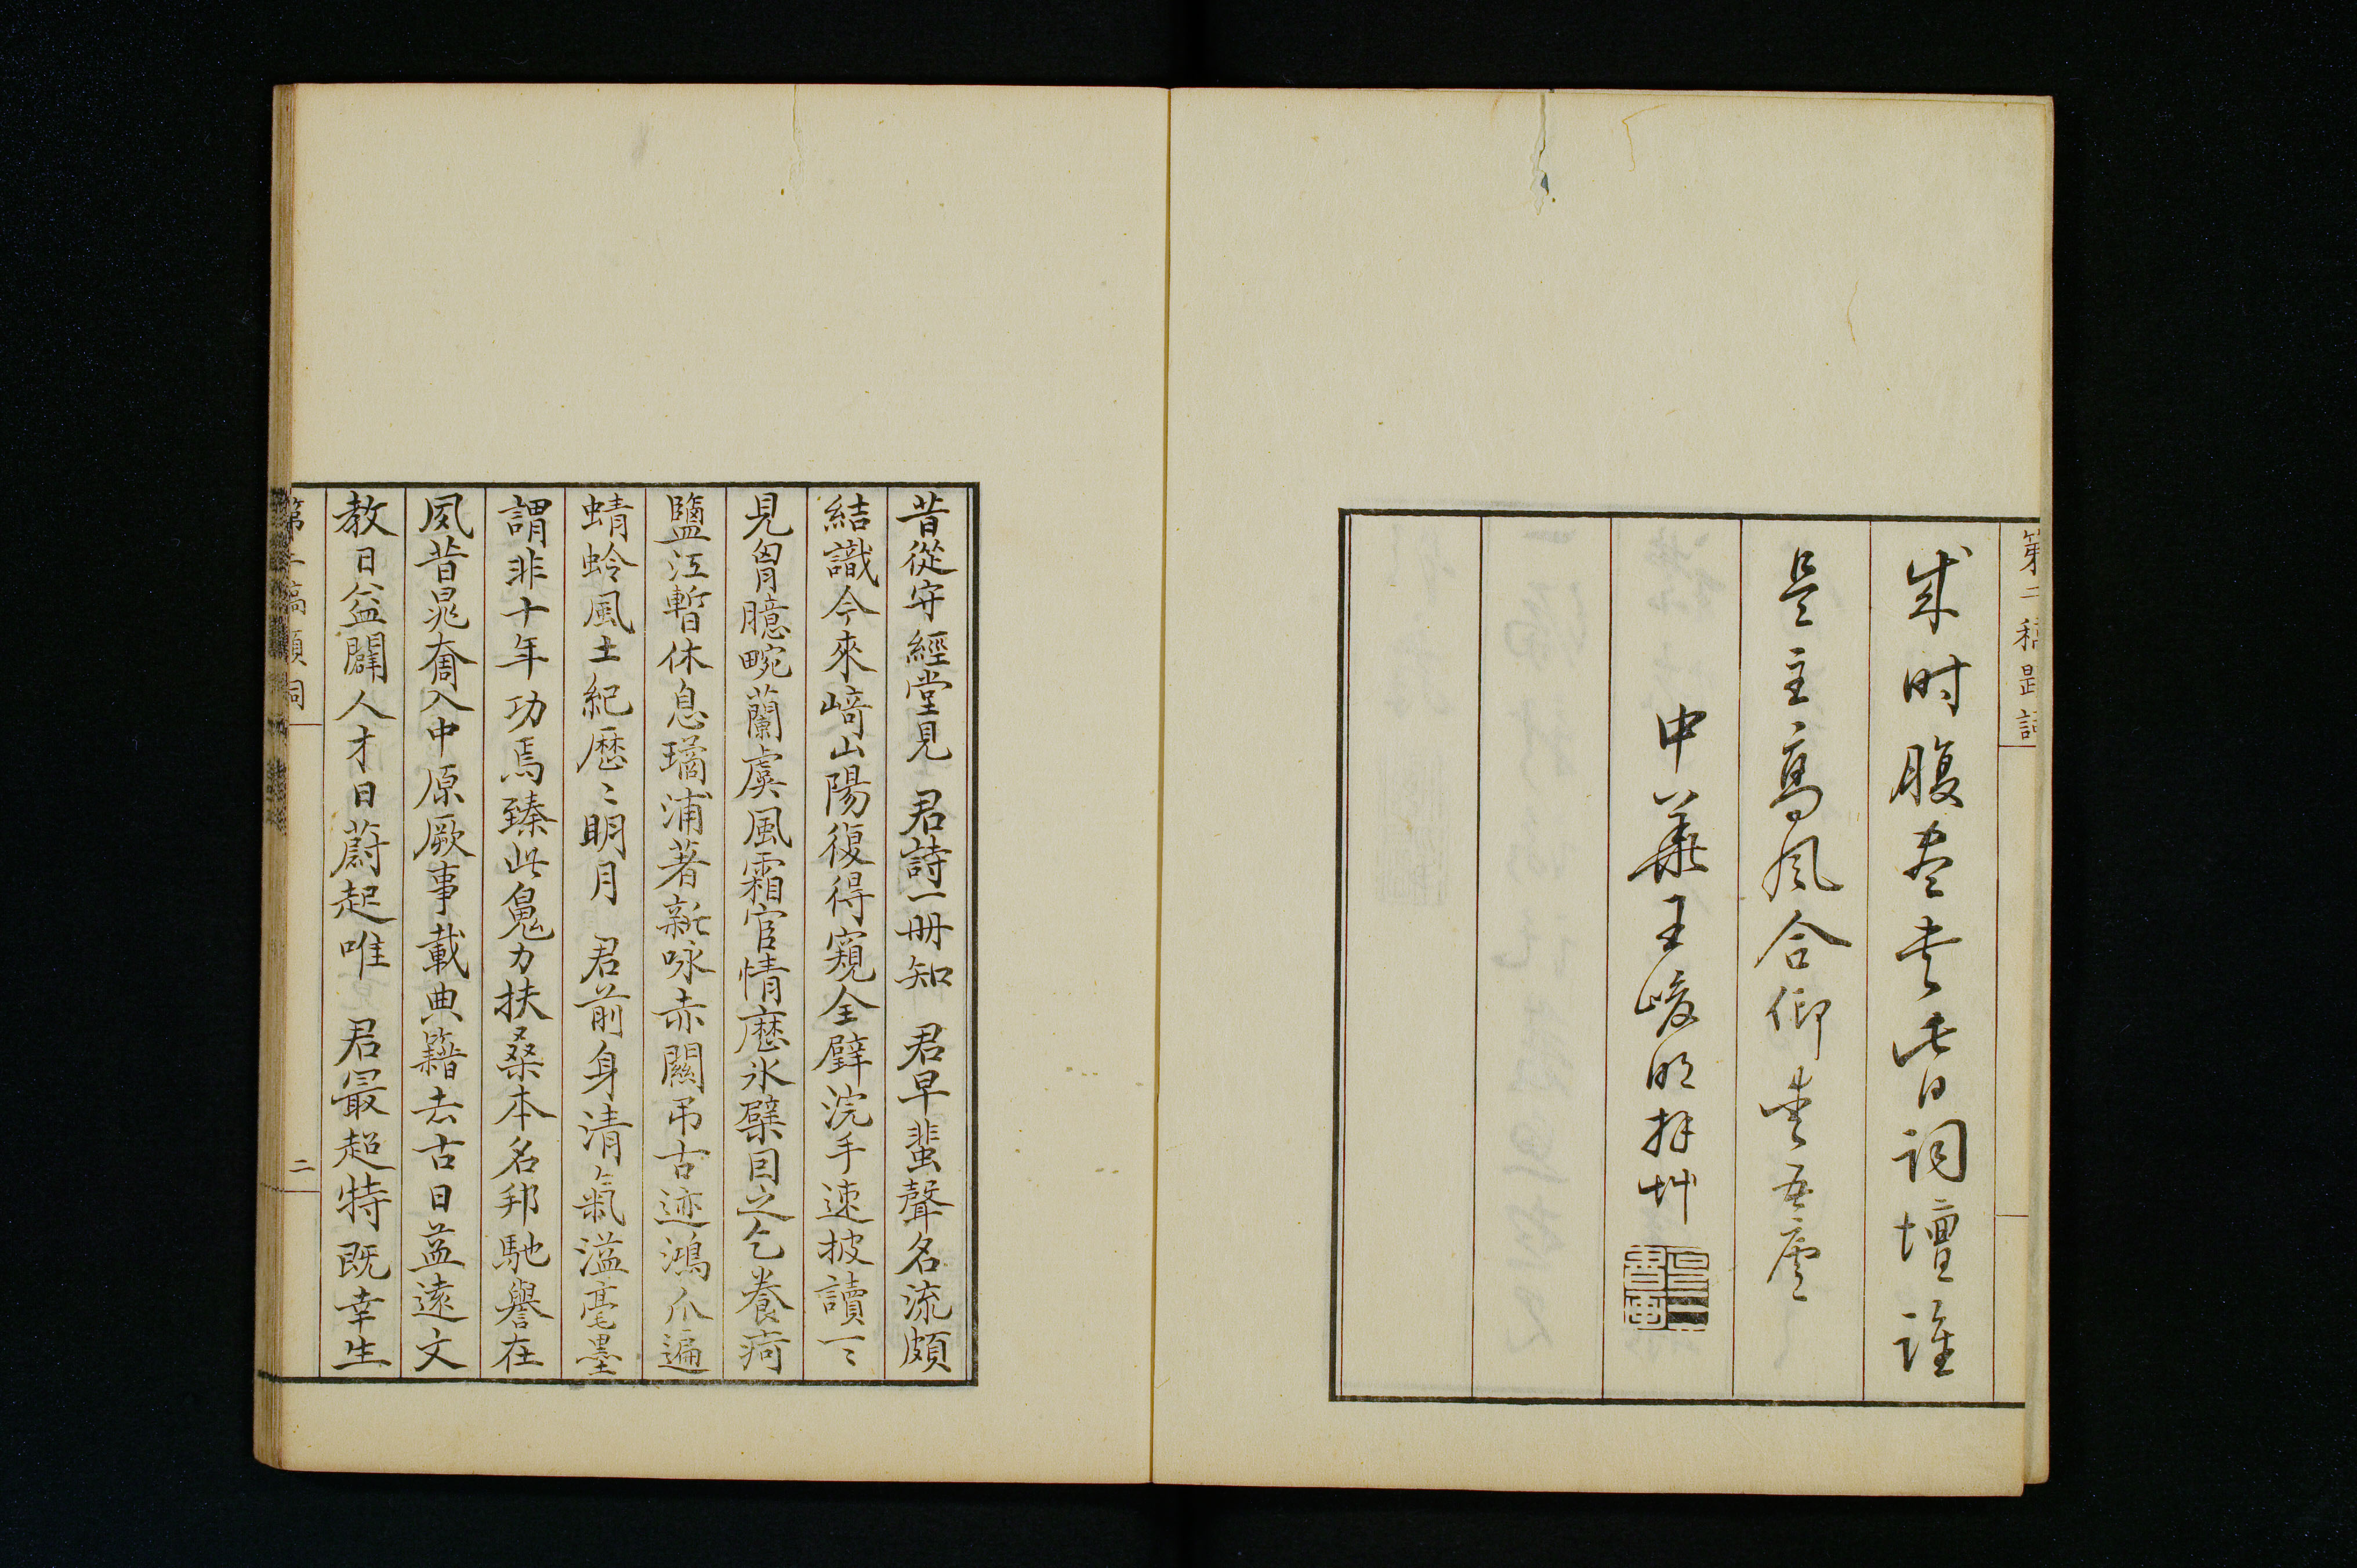 第二稿題詞
成时腹盡老皆日詞壇誰
是主高风合仰老吾廬
中華王峻明拜艸
昔從守經堂見　君詩一册知　君早蜚聲名流頗
結識今來﨑山陽復得窺全壁浣手速披讀一〻
見胷臆畹蘭虞風霜宦情歴氷檗目之乞養疴
鹽江暫休息璚浦著新咏赤關吊古迹鴻爪遍
蜻蛉風土紀歷〻明月　君前身清氣溢毫墨
謂非十年功焉臻此䰟力扶桑本名邦馳譽在
夙昔晁奝入中原厥事載典籍去古日益遠文
教日益闢人才日蔚起唯　君最超特既幸生
第二稿題詞
二